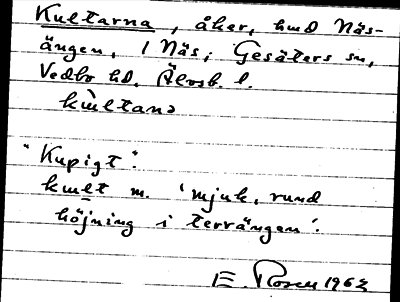 Kultarna, åker, hmd Näs-
ängen, 1 Näs, Gesäters sn,
Vedbo hd. Älvsb. l.
"Kupigt".
kult m. 'mjuk, rund
höjning i terrängen'.
E. Rosen